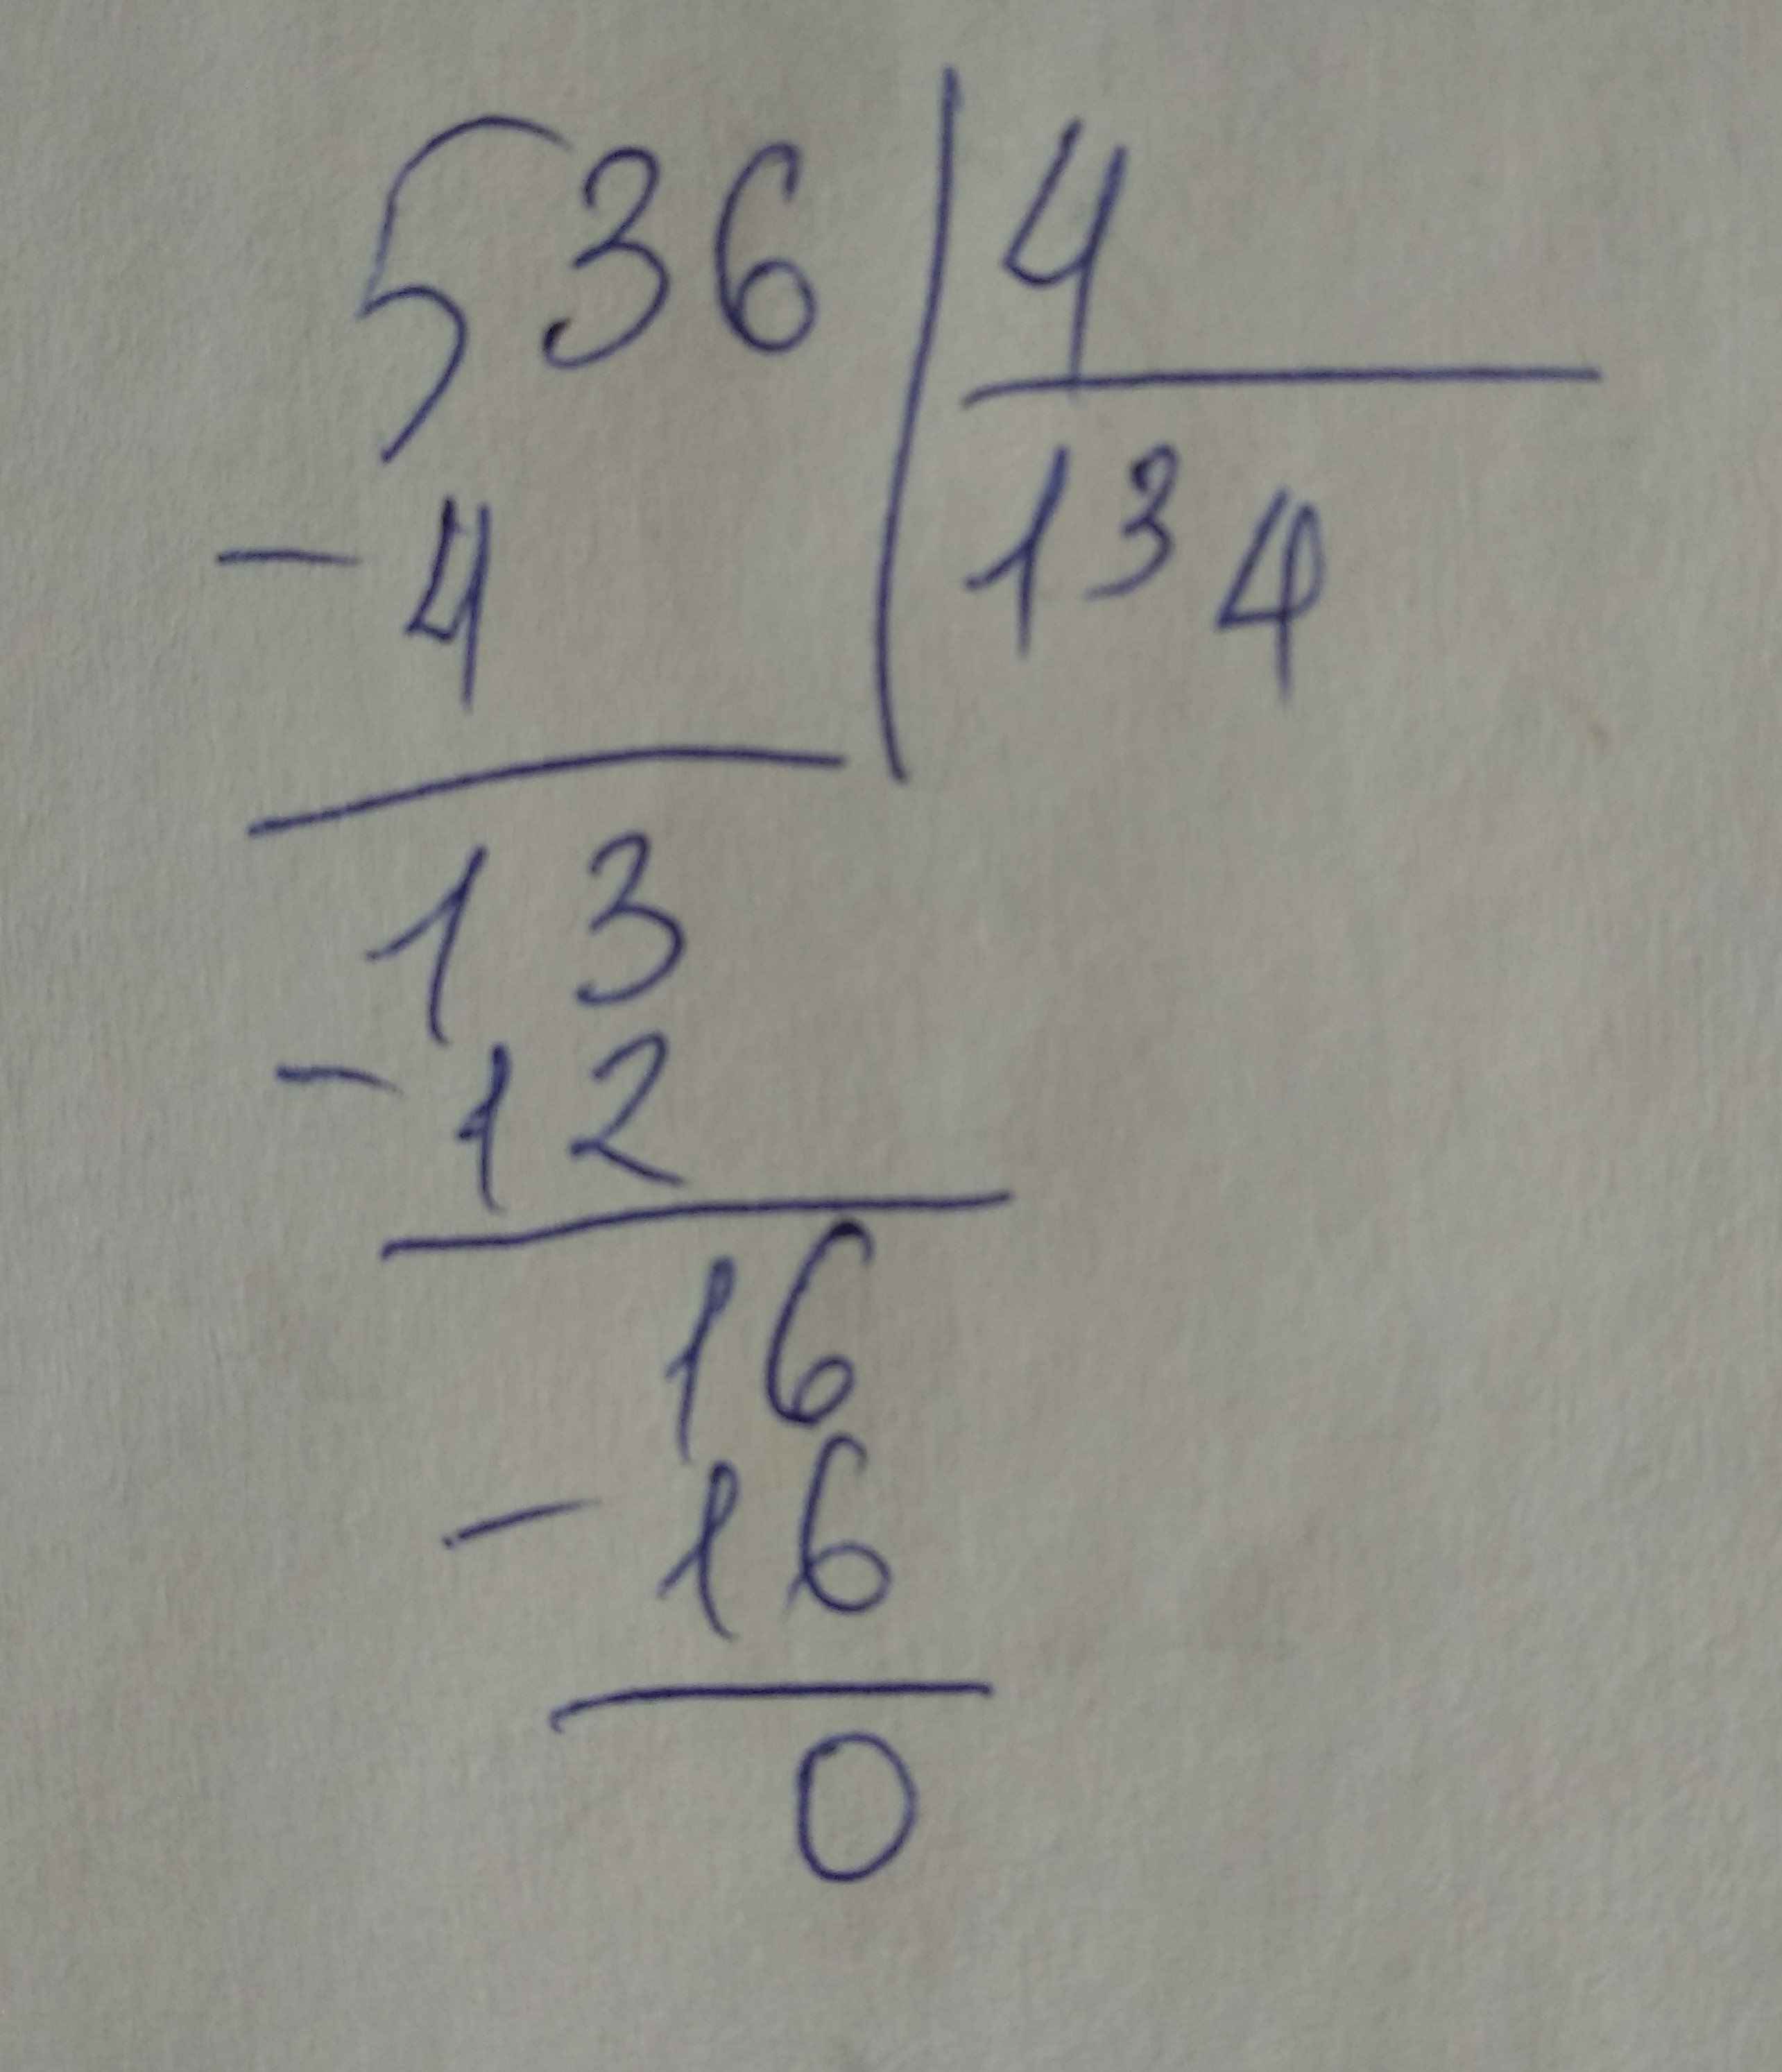 536 | 4
- 4 134
13
- 12
16
- 16
0